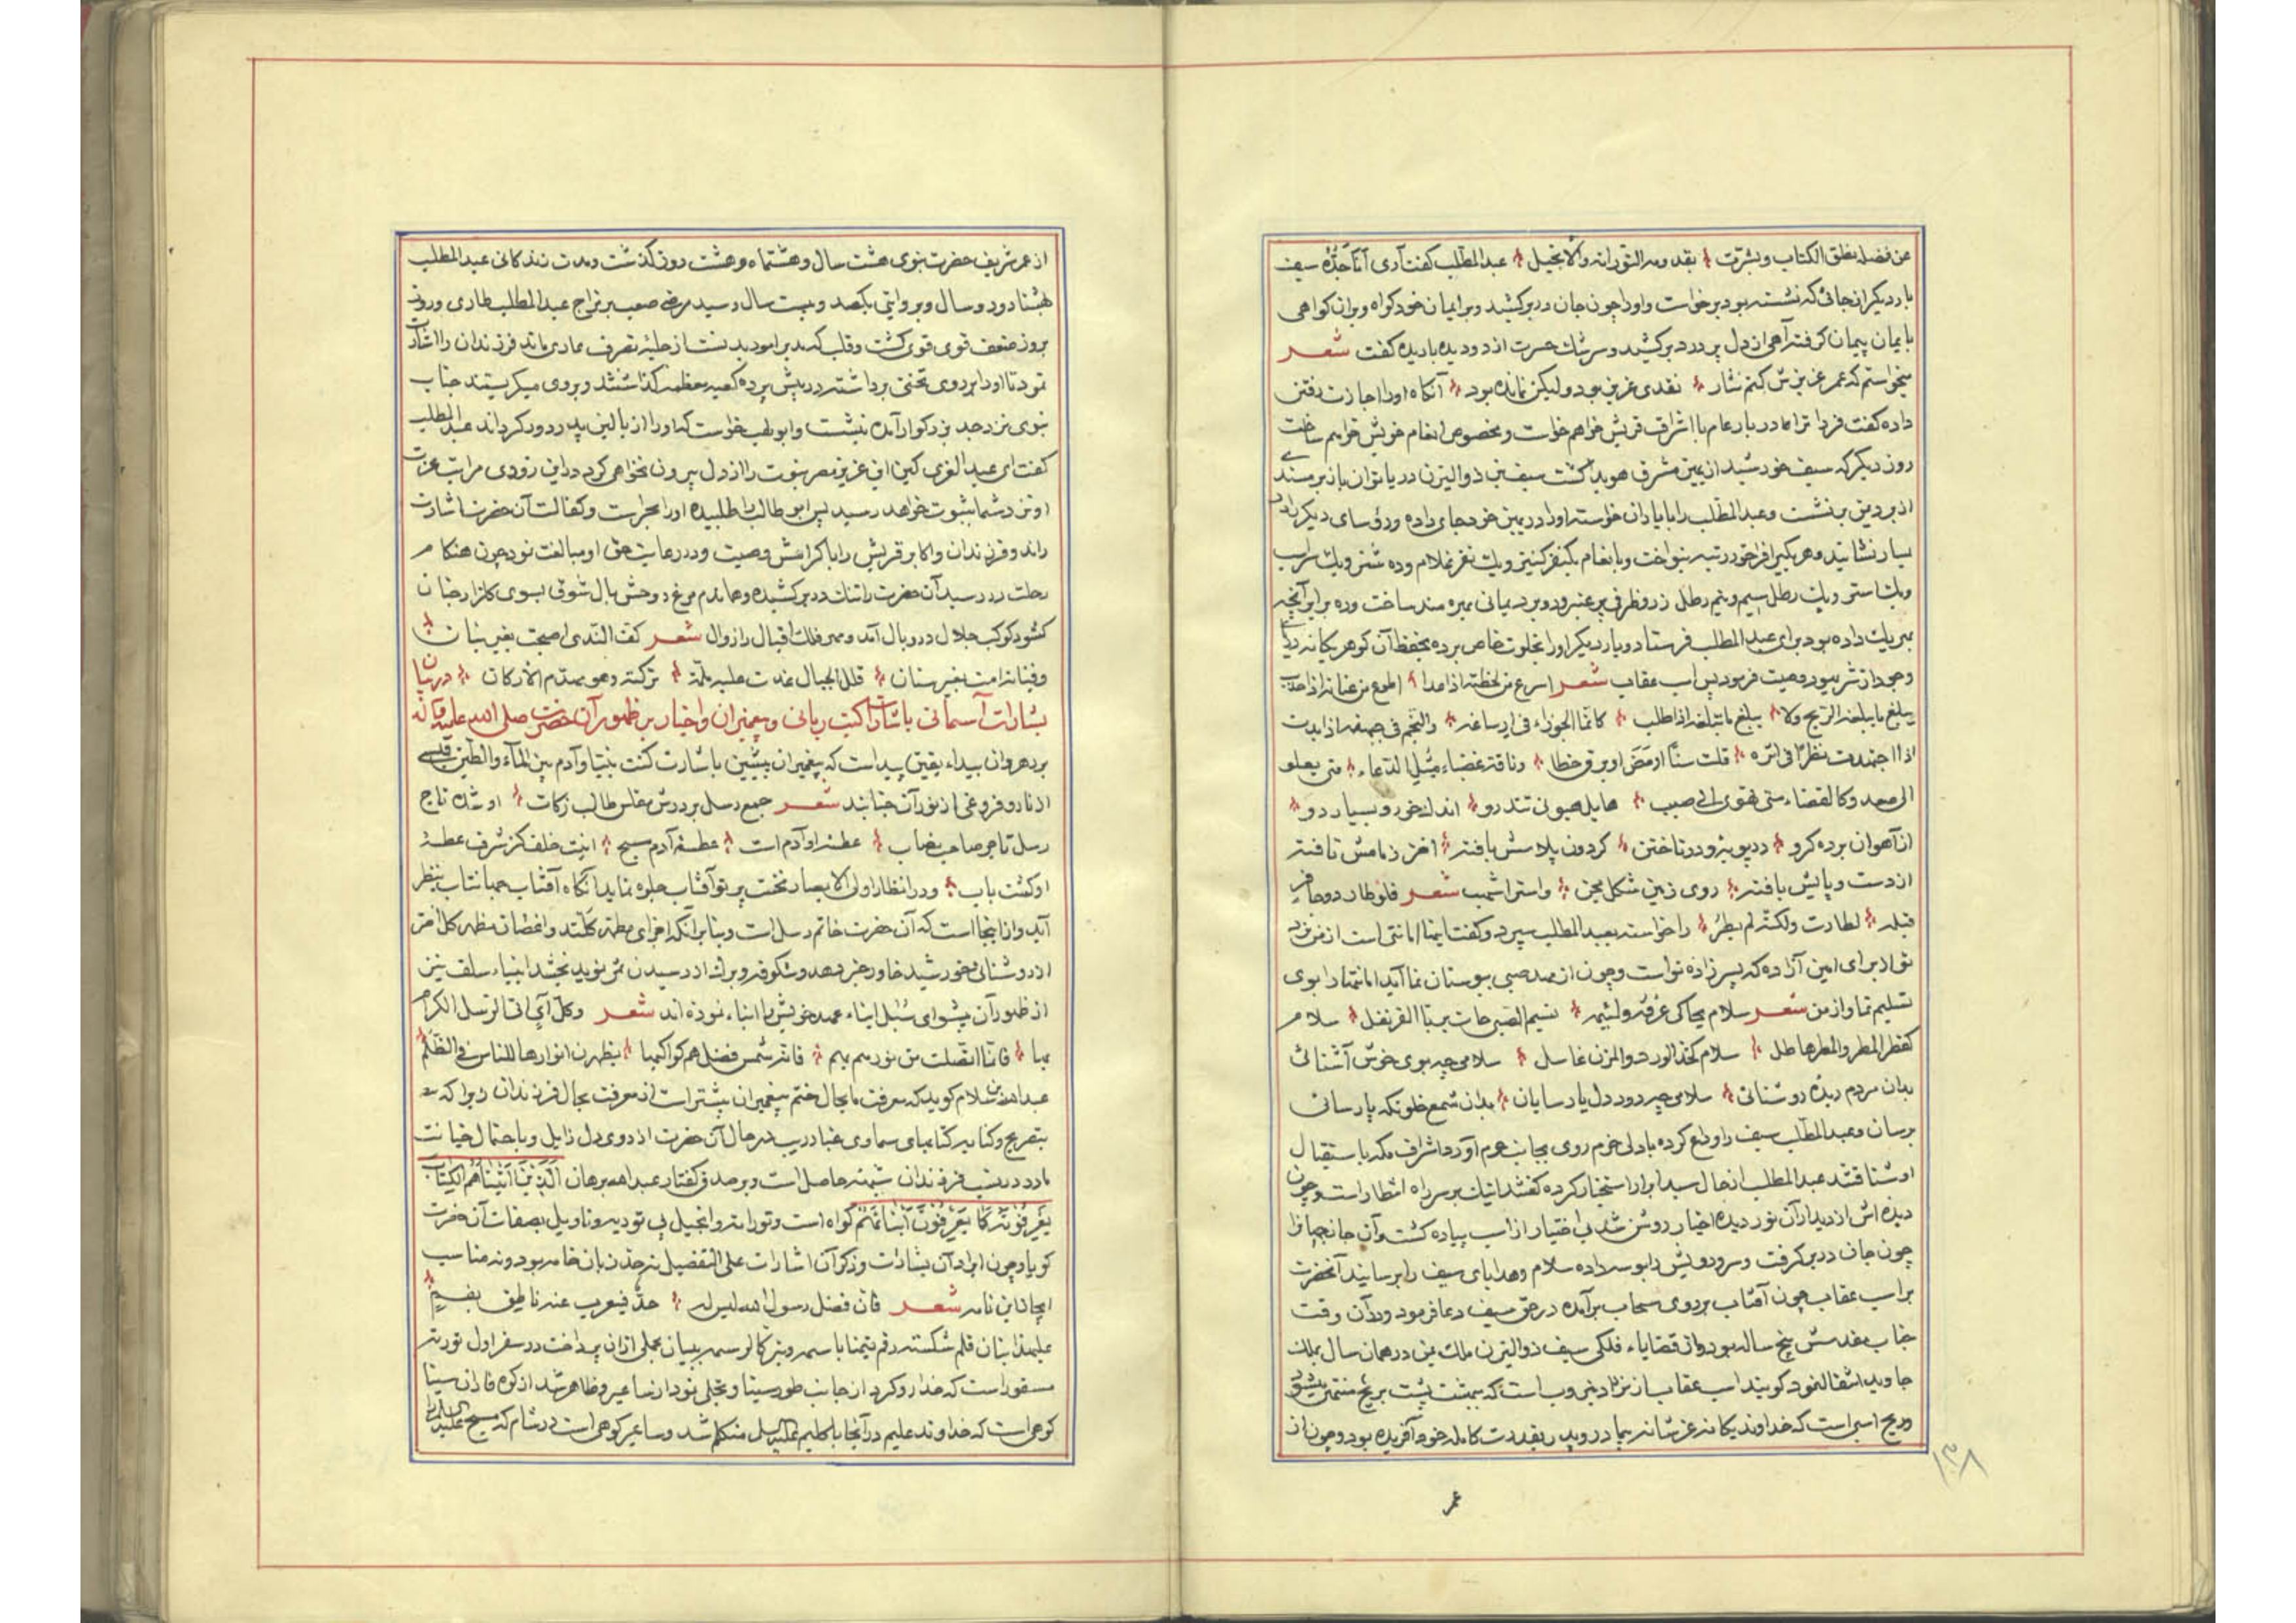 عن فضله نطق الکتاب وبشرت بقدومه التوراته والانجیل عبدالمطلب کفت آری اناجده سیف
بار دیکر از جائی که نشسته بود برخواست واورا چون جان در بر کشید و بر ایمان خود کواه و بران کواهی
با یمان پیمان کرفته آهی از دل پر درد بر کشید و سرشک حسرت از دو دیده باریده کفت شعر
میخواستم که عمر عزیزش کنم نثار نقدی عزیز بود ولیکن نمانده بود آنکاه اورا اجازت رفتن
داده کفت فردا ترا در بار عام با اشراف قریش خواهم خواست و مخصوص انعام خویش خواهم ساخت
روز دیکر که سیف خورشید از یمین مشرق هویدا کشت سیف بن ذوالیزن دریا نوان باز بر مسند
بر نشست وعبدالمطلب را با یاران خواسته اورا در یمین خود جای داده ورؤسای دیکر را در
یسار نشانید وهر یکیرا فراخور رتبه بنواخت وبانعام یکنفر کنیز ویک نفر غلام وده شتر ویک اسب
ویک استر ویک رطل سیم ونیم رطل زر وظرفی پر عنبر ودو برد یمانی بهره مند ساخت وده برابر آنچه
بهریک داده بود برای عبدالمطلب فرستاد وبار دیکر اورا بخلوت خاص برده بحفظ آن کوهر یکانه دریای
وجود از شر یهود وصیت فرمود پس اسب عقاب شعر اسرع من لحظته اذا عدا اطوع من عنانه اذا جذب
یبلغ ما یبلغه الریح ولا یبلغ ما یبلغه اذا طلب کانما الجوزاء فی ارساغه والنجم فی جبهته اذا بدت
اذا اجتهدت نظرا فی اثره قلت سنا اومض او برق خطا وناقه غضباء متی یعلو
الی صعد وکالقضاء متی تهوی الی صبب هایل هیونی تند رو اندک خور و بسیار دو
از آهوان برده کرو در پویه ودر تاختن کردون پلاسش بافته اختر زمامش تافته
از دست و پایش یافته روی زمین شکل مجن واستر اشهب شعر فلو طار ذو حافر
قبله لطارت ولکنه لم یطر را خواسته بعبدالمطلب سپرد وکفت اینها امانتی است از من نزد
تو از برای امین آزاده که پسر زاده تو است وچون از مهد صبی ببوستان نما آید امانتها را بوی
تسلیم نما واز من شعر سلام یحاکی عرفه ولثیمه نسیم الصبی جات بریا القرنفل سلام
کقطر المطر والمطر هاطل سلام کخذ الورد والمزن غاسل سلامی چه بوی خوش آشنائی
بدان مردم دیده روشنائی سلامی چه درد دل پارسایان بدان شمع خلوتکه پارسائی
برسان وعبدالمطلب سیف را وداع کرده با دلی خرم روی بجانب حرم آورد اشراف مکه باستقبال
او شتافتند عبدالمطلب از حال سید ابرار استخبار کرده کفتند اینک بر سر راه انتظار است وچون
دیده اش از دیدار آن نور دیده اخیار روشن شد بی اختیار از اسب پیاده کشت وآن جان جهانرا
چون جان در بر کرفت و سر ورویش را بوسه داده سلام وهدایای سیف را برسانید آنحضرت
بر اسب عقاب چون آفتاب بر روی سحاب برآمده در حق سیف دعا فرمود ودر آن وقت
جناب مقدسش پنج ساله بود واز قضایاء فلکی سیف ذوالیزن ملک یمن در همان سال بملک
جاوید انتقال نمود کویند اسب عقاب از نژاد نجیب است که بهشت پشت بریح منتهی میشود
وریح اسبی است که خداوند یکانه عزشانه بیمادر وپدر بقدرت کامله خود آفریده بود وچون از
عمر
۱۳۸
از عمر شریف حضرت نبوی هشت سال وهشتماه وهشت روز کذشت ومدت زندکانی عبدالمطلب
بهشتاد ودو سال وبروایتی بکصد وبیست سال رسید مرضی صعب بر مزاج عبدالمطلب طاری وروز
بروز ضعف قوی قوی کشت وقلب که مدبر امور بدنست از حلیه تصرف عاری ماند فرزندان را اشارت
نمود تا اورا بر روی تختی برداشته در پیش پرده کعبه معظمه کذاشتند وبروی میکریستند جناب
نبوی نزد جد بزرکوار آمده بنشست وابولهب خواست که اورا از بالین پدر دور کرداند عبدالمطلب
کفت ای عبدالعزی کین این عزیز مصر نبوت را از دل بیرون نخواهی کرد در این زودی مراتب عزت
او نزد شما بثبوت خواهد رسید پس ابوطالب را طلبیده اورا بحراست وکفالت آن حضرت اشارت
راند وفرزندان واکابر قریش را باکرامش وصیت ودر رعایت حق او مبالغت نمود چون هنکام
رحلت در رسید آن حضرت را تنک در بر کشیده وهماندم مرغ روحش بال شوق بسوی کلزار جنان
کشود کوکب جلال در وبال آمد ومهر فلک اقبال را زوال شعر کف الندی اصبحت بغیر بنان
وقناته امست بغیر سنان قلل الجبال غدت علیه ملمة ترکته وهو مهدم الارکان در بیان
بشارات آسمانی باشارات کتب ربانی وپیغمبران واخیار بر ظهور آن حضرت صلی الله علیه وآله
بر دهروان بیداء یقین پیداست که پیغمبران پیشین باشارت کنت نبیا وآدم بین المآء والطین قبسی
از نار وفروغی از نور آن جنابند شعر جمع رسل بر درش مفلس طالب زکات او شده تاج
رسل تاجر صاحب نصاب عطسه او آدم است عطسه آدم مسیح اینت خلف کز شرف عطسه
او کشت باب ودر انظار اولی الابصار نخست پرتو آفتاب جلوه نماید آنکاه آفتاب جهانتاب بنظر
آید واز اینجا است که آن حضرت خاتم رسل است وبنابر آنکه اجزای مطهر کلند واغصان مظهر کل افق
از روشنائی خورشید خاور خبر دهد وشکوفه وبرک از رسیدن ثمر نوید بخشد انبیاء سلف نیز
از ظهور آن پیشوای سبل ابناء عهد خویش را انباء نموده اند شعر وکل آی اتی الرسل الکرام
بها فانما اتصلت من نوره بهم فانه شمس فضل هم کواکبها یظهرن انوارها للناس فی الظلم
عبدالله بن سلام کوید که معرفت ما بحال ختم پیغمبران بیشتر است از معرفت بحال فرزندان زیرا که
بتصریح وکنایه کتابهای سماوی غبار ریب در حال آن حضرت از روی دل زایل وباحتمال خیانت
مادر در نسب فرزندان شبهه حاصل است وبر صدق کفتار عبدالله برهان الذین آتیناهم الکتاب
یعرفونه کما یعرفون ابنائهم کواه است وتوراته وانجیل بی توریه وتاویل بصفات آن حضرت
کویا وچون ایراد آن بشارات وذکر آن اشارات علی التفصیل نه حد زبان خامه بود ونه مناسب
ایجاز این نامه شعر فان فضل رسول الله لیس له حد فیعرب عنه ناطق بفم
علیهذا بنان قلم شکسته رقم تیمنا باسمه وتبرکا لرسمه ببیان مجملی از ان پرداخت در سفر اول توریه
مسطور است که خدا رو کرد از جانب طور سینا وتجلی نمود از ساعیر وظاهر شد از کوه فاران سینا
کوهی است که خداوند علیم در آنجا با کلیم علیه السلام متکلم شد وساعیر کوهی است در شام که مسیح علیه السلام